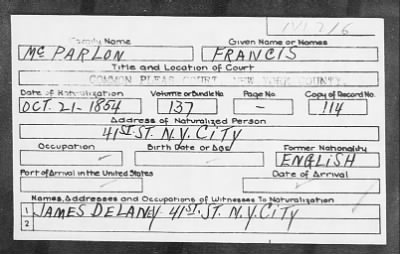 Family Name Given Name or Names
McPARLON FRANCIS
Title and Location of Court
COMMON PLEAS COURT, NEW YORK COUNTY
Date of Naturalization Volume or Bundle No. Page No. Copy of Record No.
OCT. 21-1854 137 - 114
Address of Naturalized Person
41ST. ST. N.Y. CITY
Occupation Birth Date or Age Former Nationality
ENGLISH
Port of Arrival in the United States Date of Arrival
Names, Addresses and Occupations of Witnesses To Naturalization
1 JAMES DELANEY 41ST. ST. N.Y. CITY
2